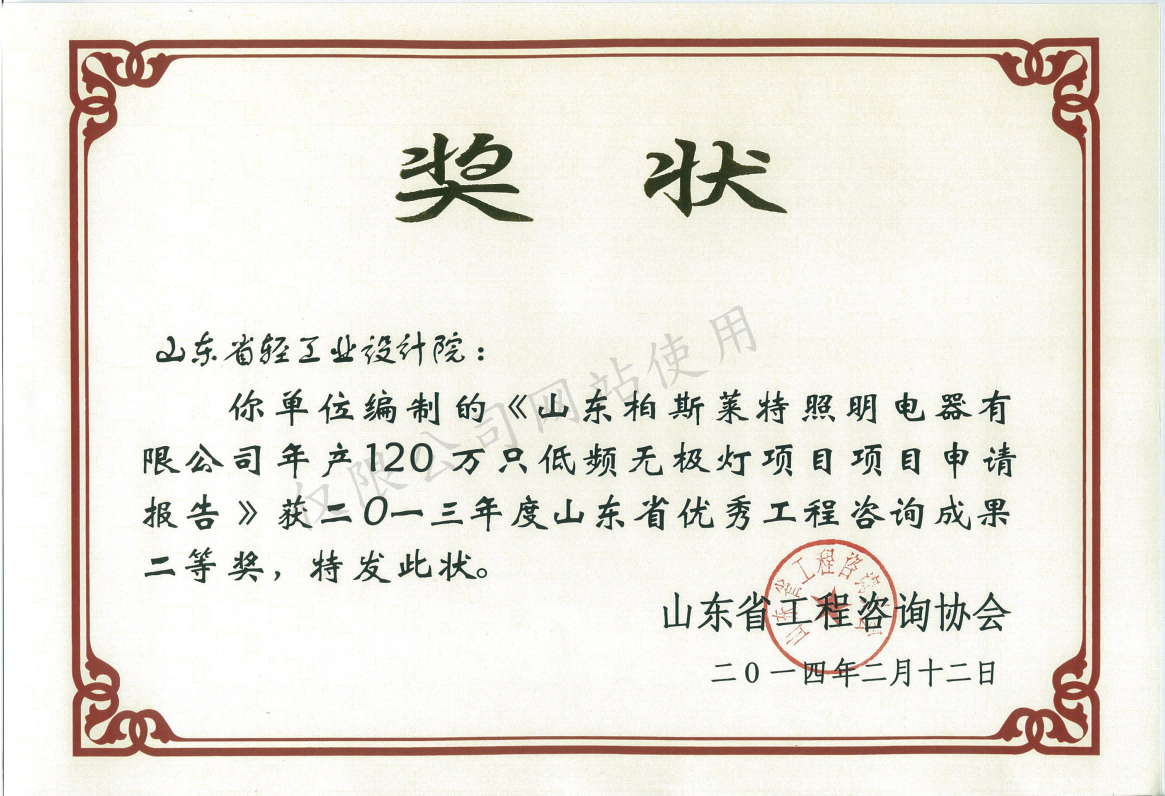 奖 状
山东省轻工业设计院：
你单位编制的《山东柏斯莱特照明电器有
限公司年产120万只低频无极灯项目项目申请
报告》获二〇一三年度山东省优秀工程咨询成果
二等奖，特发此状。
山东省工程咨询协会
二〇一四年二月十二日
仅限公司网站使用
山东省工程咨询